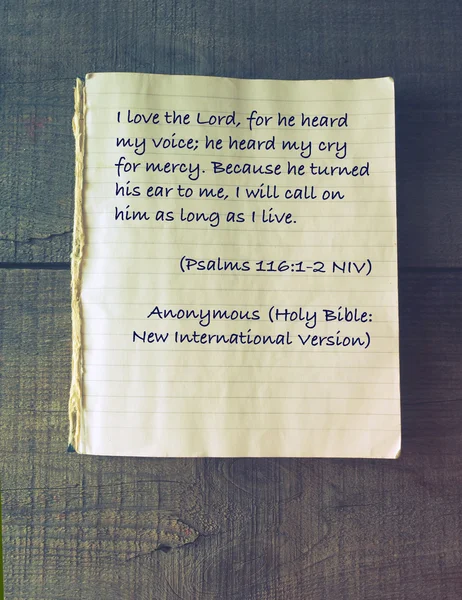 I love the Lord, for he heard
my voice; he heard my cry
for mercy. Because he turned
his ear to me, I will call on
him as long as I live.
(Psalms 116:1-2 NIV)
Anonymous (Holy Bible:
New International Version)